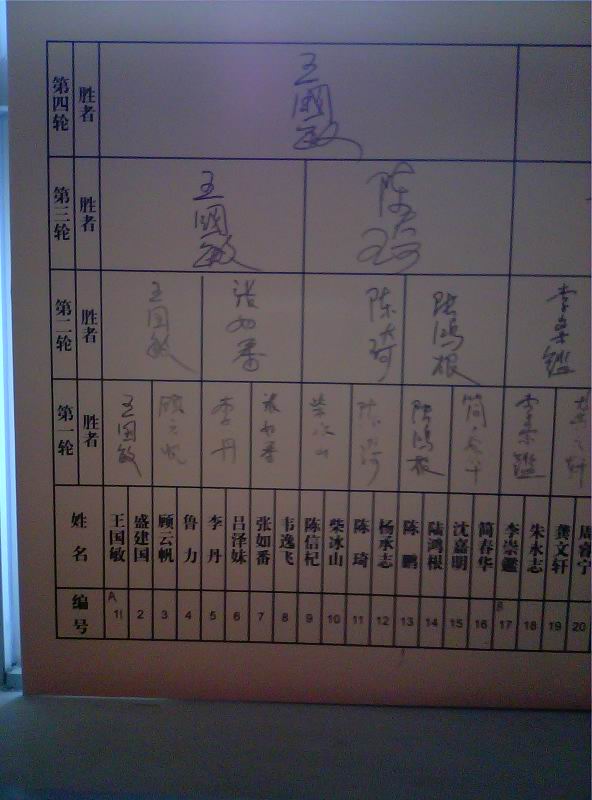 第四轮 胜者 王國敏
第三轮 胜者 王國敏 陈琦
第二轮 胜者 王国敏 张如番 陈琦 陆鸿根 李崇鑑
第一轮 胜者 王国敏 顾云帆 李丹 张如番 柴冰山 陈琦 陆鸿根 简春华 李崇鑑
姓名 王国敏 盛建国 顾云帆 鲁力 李丹 吕泽妹 张如番 韦逸飞 陈信杞 柴冰山 陈琦 杨承志 陈鹏 陆鸿根 沈嘉明 简春华 李崇鑑 朱永志 龚文轩 周睿宁
编号 A 1 2 3 4 5 6 7 8 9 10 11 12 13 14 15 16 B 17 18 19 20